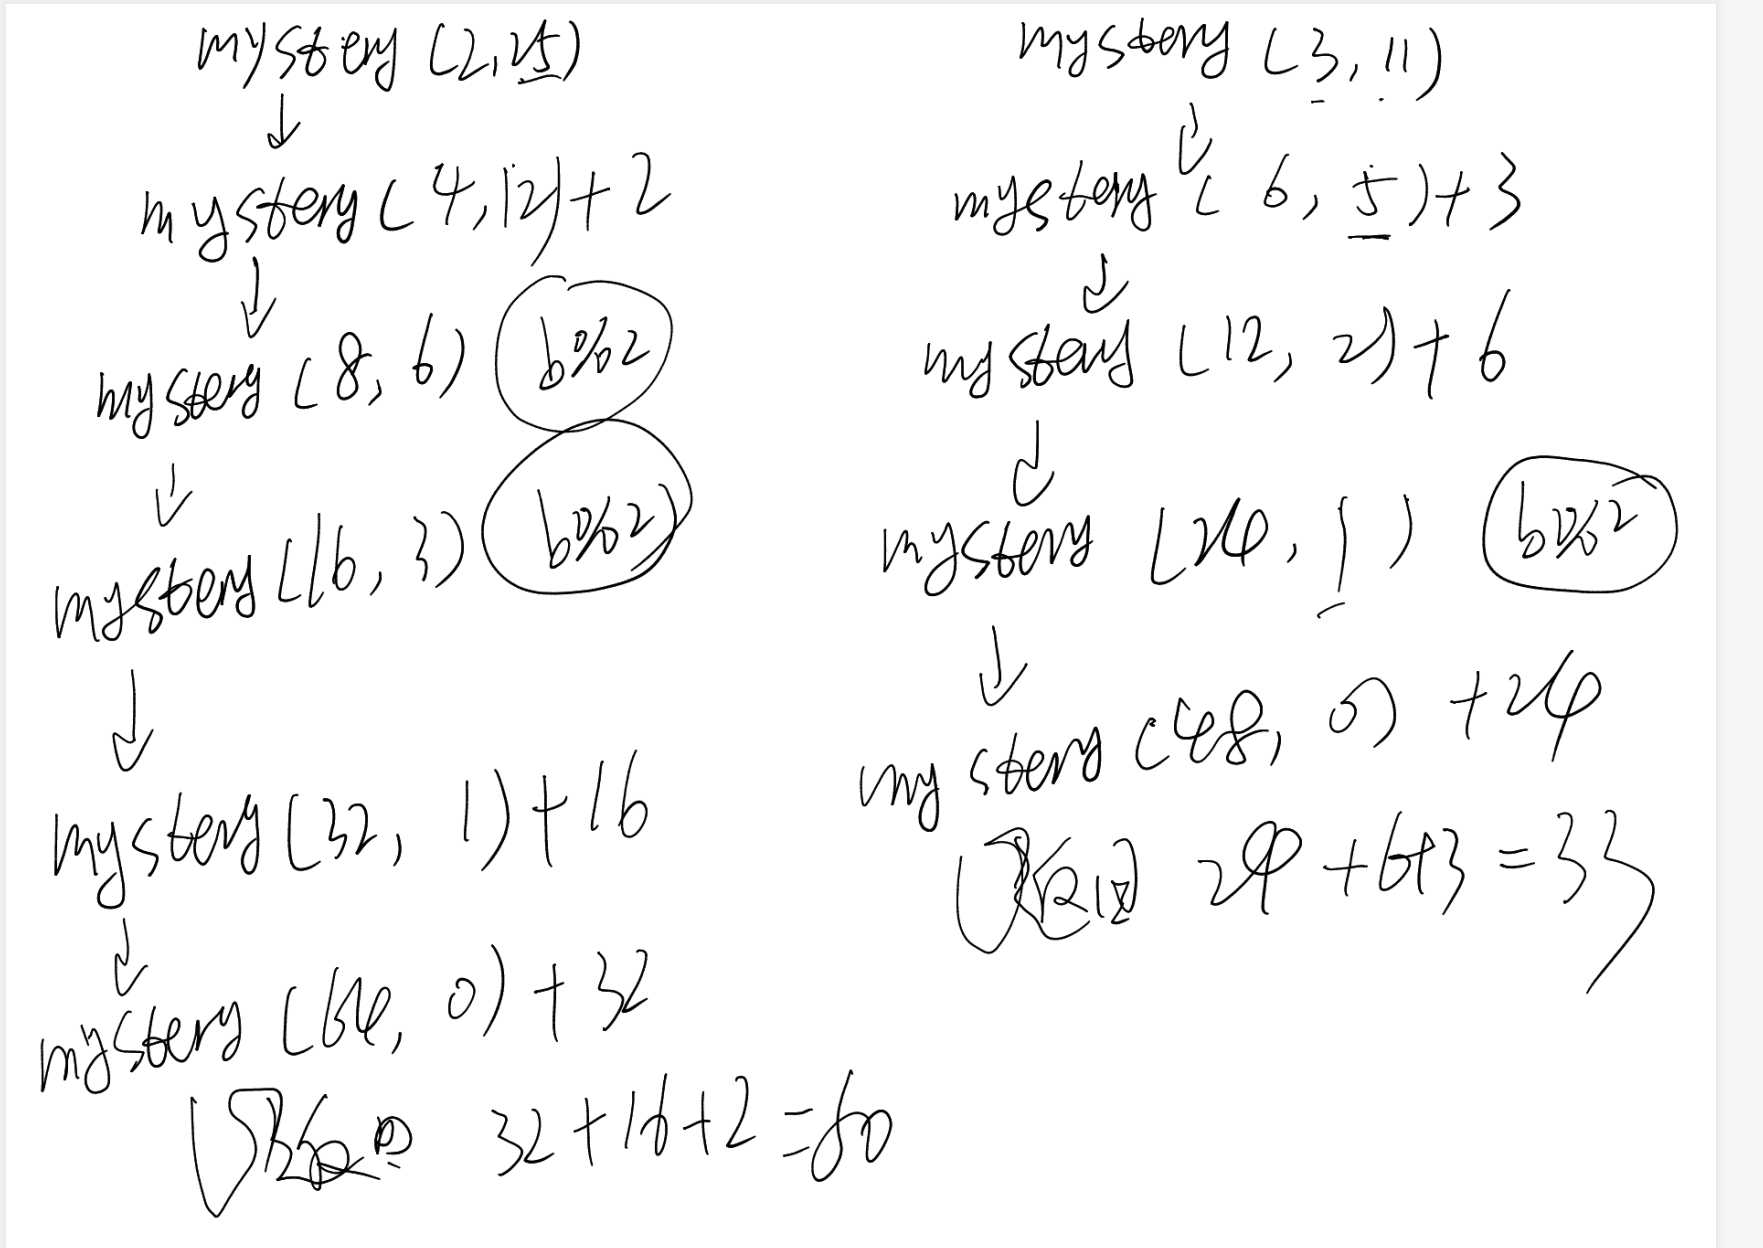 mystery (2,25)
↓
mystery (4,12)+2
↓
mystery (8,6) b%2
↓
mystery (16,3) b%2
↓
mystery (32, 1)+16
↓
mystery (64, 0)+32
32+16+2=50
mystery (3, 11)
↓
mystery (6, 5)+3
↓
mystery (12, 2)+6
↓
mystery (24, 1) b%2
↓
mystery (48, 0) +24
返回 24+6+3=33